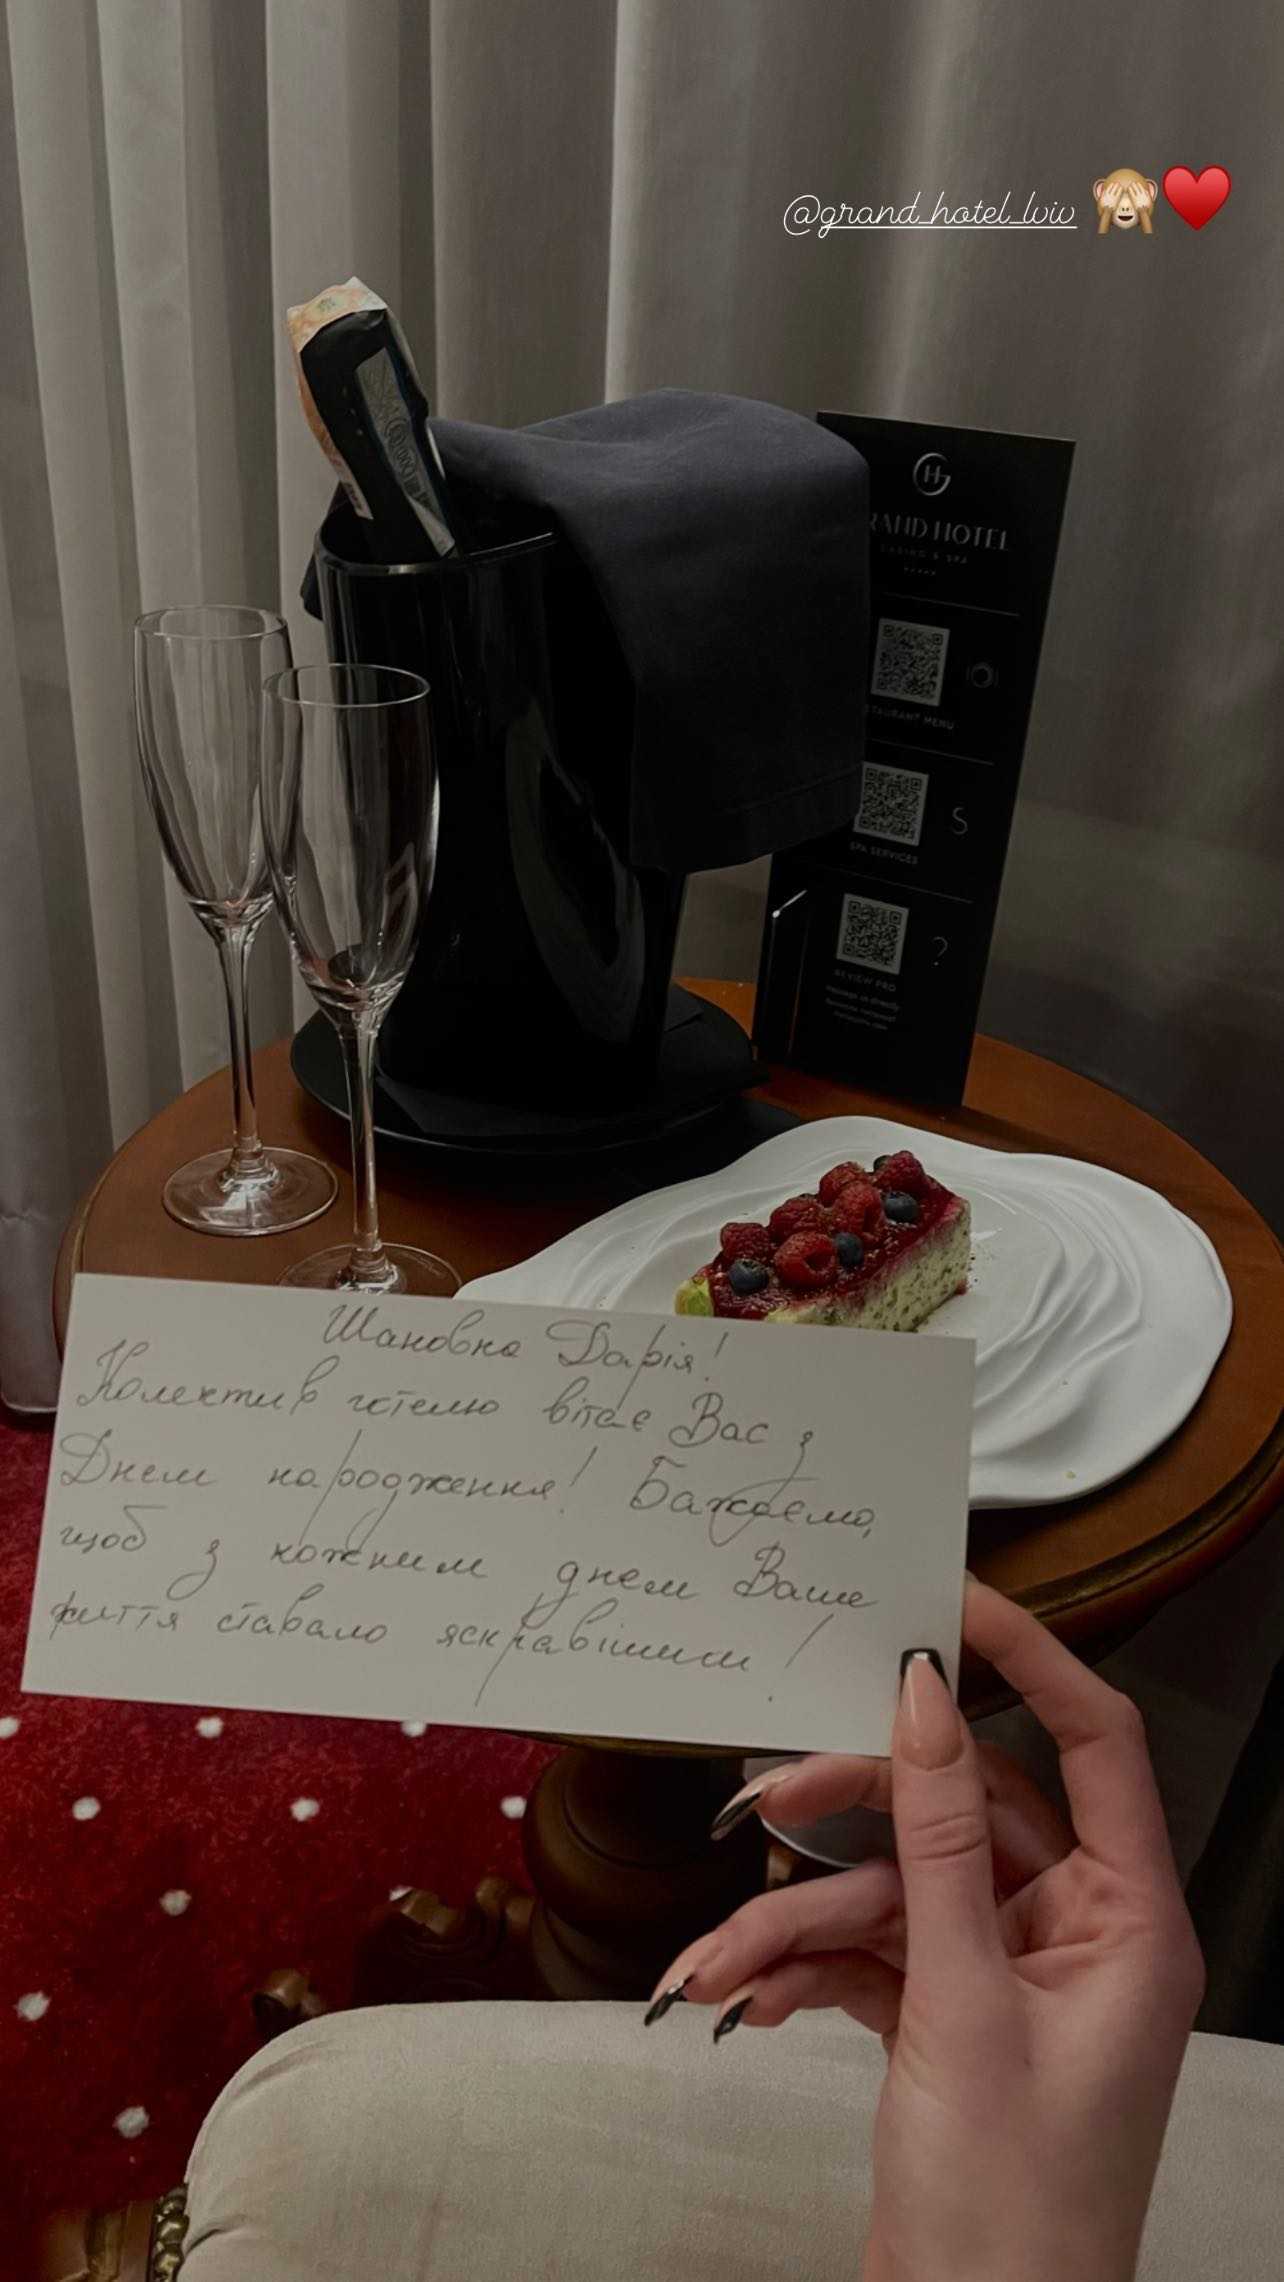 @grand_hotel_lviv
GRAND HOTEL
CASINO & SPA
RESTAURANT MENU
S
SPA SERVICES
?
REVIEW PRO
Message us directly
Шановна Дарія!
Колектив готелю вітає Вас з
Днем народження! Бажаємо,
щоб з кожним днем Ваше
життя ставало яскравішим!